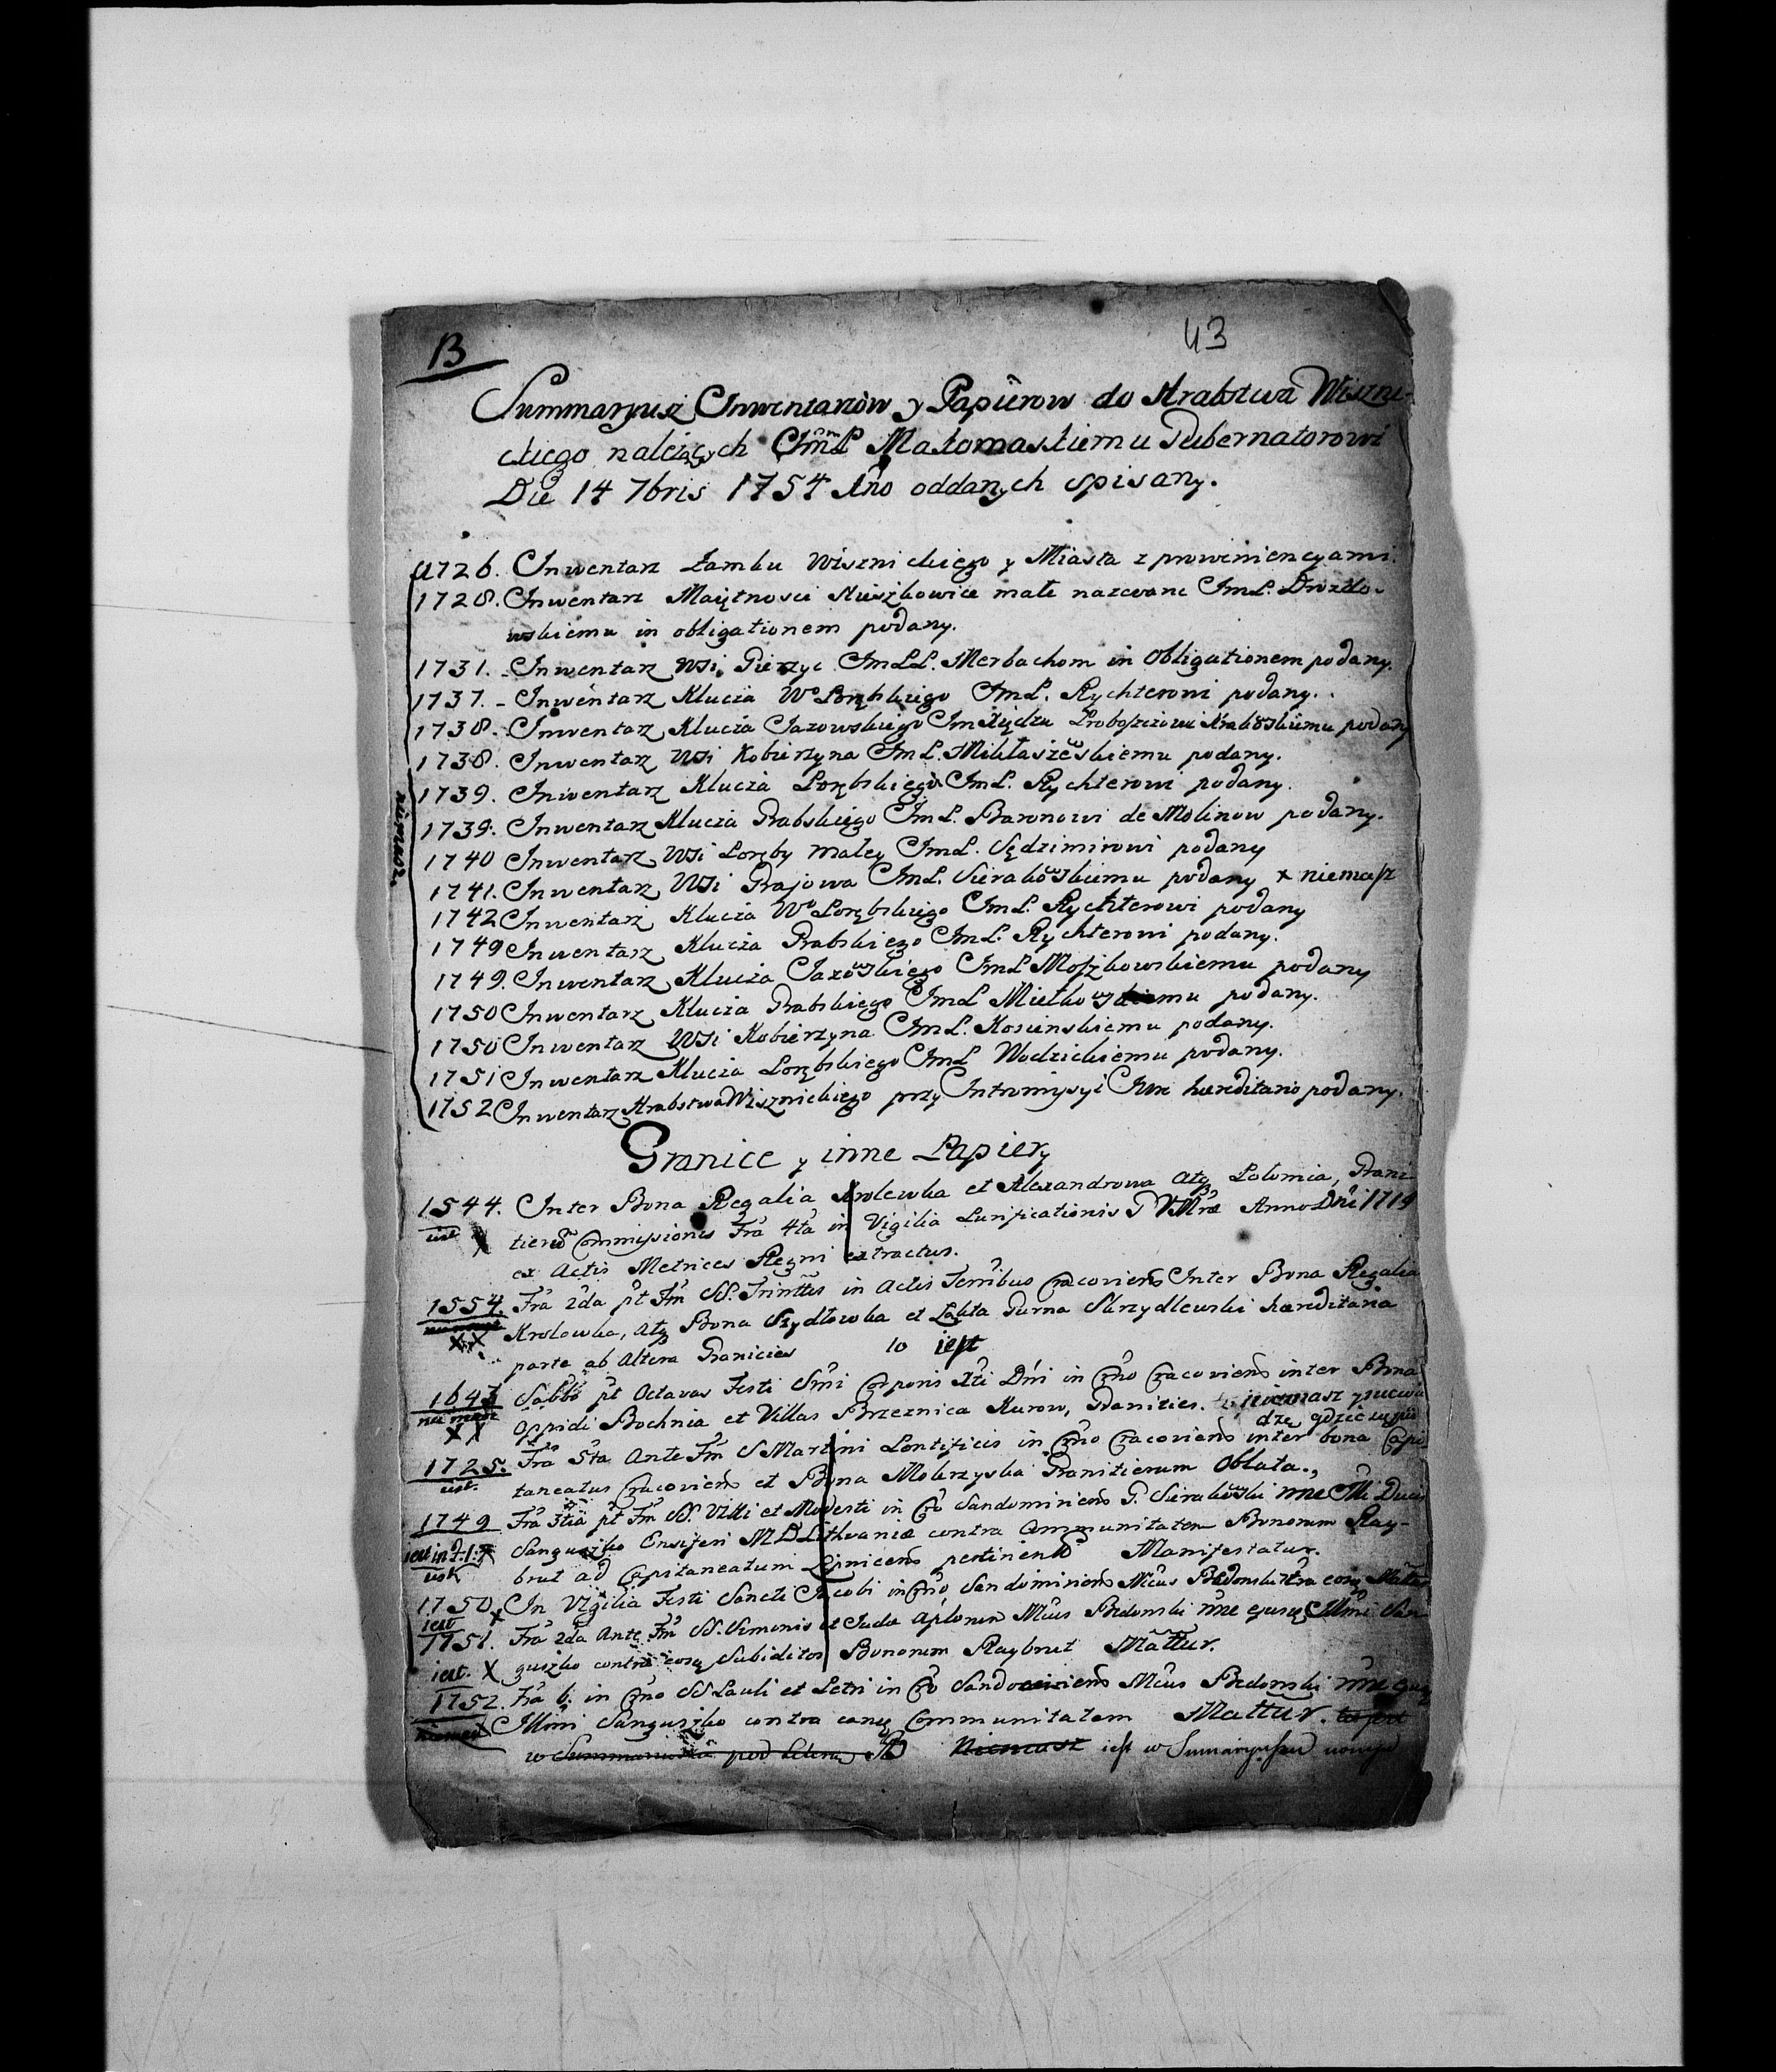 B
43
Summaryusz Inwentarzow y Papierow do Hrabstwa Wiszni-
ckiego należących ImP Małomaskiemu Gubernatorowi
Die 14 7bris 1754 Ao oddanych spisany.
1726. Inwentarz Zamku Wisznickiego y Miasta z proweniencyami.
1728. Inwentarz Maiętnosci Nieszkowice małe nazwane ImP. Drozdo-
wskiemu in obligationem podany.
1731. Inwentarz Wsi Gierzyc ImPP. Merbachom in Obligationem podany.
1737. Inwentarz Klucza Wo Porębskiego ImP. Rychterowi podany.
1738. Inwentarz Klucza Jazowskiego ImXiędzu Proboszczowi podany
1738. Inwentarz Wsi Kobierzyna ImP. Mikłaszewskiemu podany.
1739. Inwentarz Klucza Porębskiego ImP. Rychterowi podany.
1739. Inwentarz Klucza Grabskiego ImP. Baronowi de Molinow podany.
niemasz
1740 Inwentarz Wsi Poręby małey ImP. Sędzimirowi podany
1741. Inwentarz Wsi Grajowa ImP. Sierakowskiemu podany x niemasz
1742 Inwentarz Klucza Wo Porębskiego ImP. Rychterowi podany
1749 Inwentarz Klucza Grabskiego ImP. Rychterowi podany.
1749. Inwentarz Klucza Jazowskiego ImP Moszkowskiemu podany
1750 Inwentarz Klucza Grabskiego ImP podany.
1750 Inwentarz Wsi Kobierzyna ImP. Kosinskiemu podany.
1751 Inwentarz Klucza Porębskiego ImP Wodzickiemu podany.
1752 Inwentarz Hrabstwa Wisznickiego przy Intromissyi Iure hæreditario podany.
Granice y inne Papiery
1544. Inter Bona Regalia Krolewka et Alexandrowa atq Polomia, Grani
iest X tierũ Commissionis Fra 4ta in Vigilia Purificationis Anno Dni 1719
ex Actis Metrices Regni extractus.
1554. Fra 2da pt Fm SS. Trinttis in Actis Terribus Cracoviens Inter Bona Regalia
XX Krolowka, atq Bona Szydłowka et Łąkta Gurna Skrzydlewski hæreditaria
parte ab Altera Granicies to iest
1643 Sabbo pt Octavas Festi Smi Corporis Xti Dni in Cracoviens inter Bona
nie masz XX Oppidi Bochnia et Villas Brzeznica Kurow, Granicies. niemasz
dzę gdzie
1725. Fra 5ta Ante Fm S Martini Pontificis in Cracoviens inter bona Capi
iest. taneatus Cracoviens et Bona Mokrzyska Granitierum Oblata.
1749 Fra 3tia pt Fm SS. Viti et Modesti in Sandomiriens G. Sierakowski nne Illi Ducis
iest Sanguszko Ensiferi M D Lithvaniæ contra Communitatem Bonorum Ray-
brut ad Capitaneatum Lipnicens pertinens Manifestatur.
1750 In Vigilia Festi Sancti Jacobi in Sandomiriens
iest x
1751. Fra 2da Ante Fm SS. Simonis et Judæ Aplorum Bredonski nne Illmi San
iest. X guszko contra eosq Subiditos Bonorum Raybrut Mattur.
1752. Fra 6. in SS Pauli et Petri in Bredonski nne
Illmi Sanguszko contra eanq Communitatem Mattur.
w Summariuszu pod Literą Niemasz iest w Sumaryuszu nowym